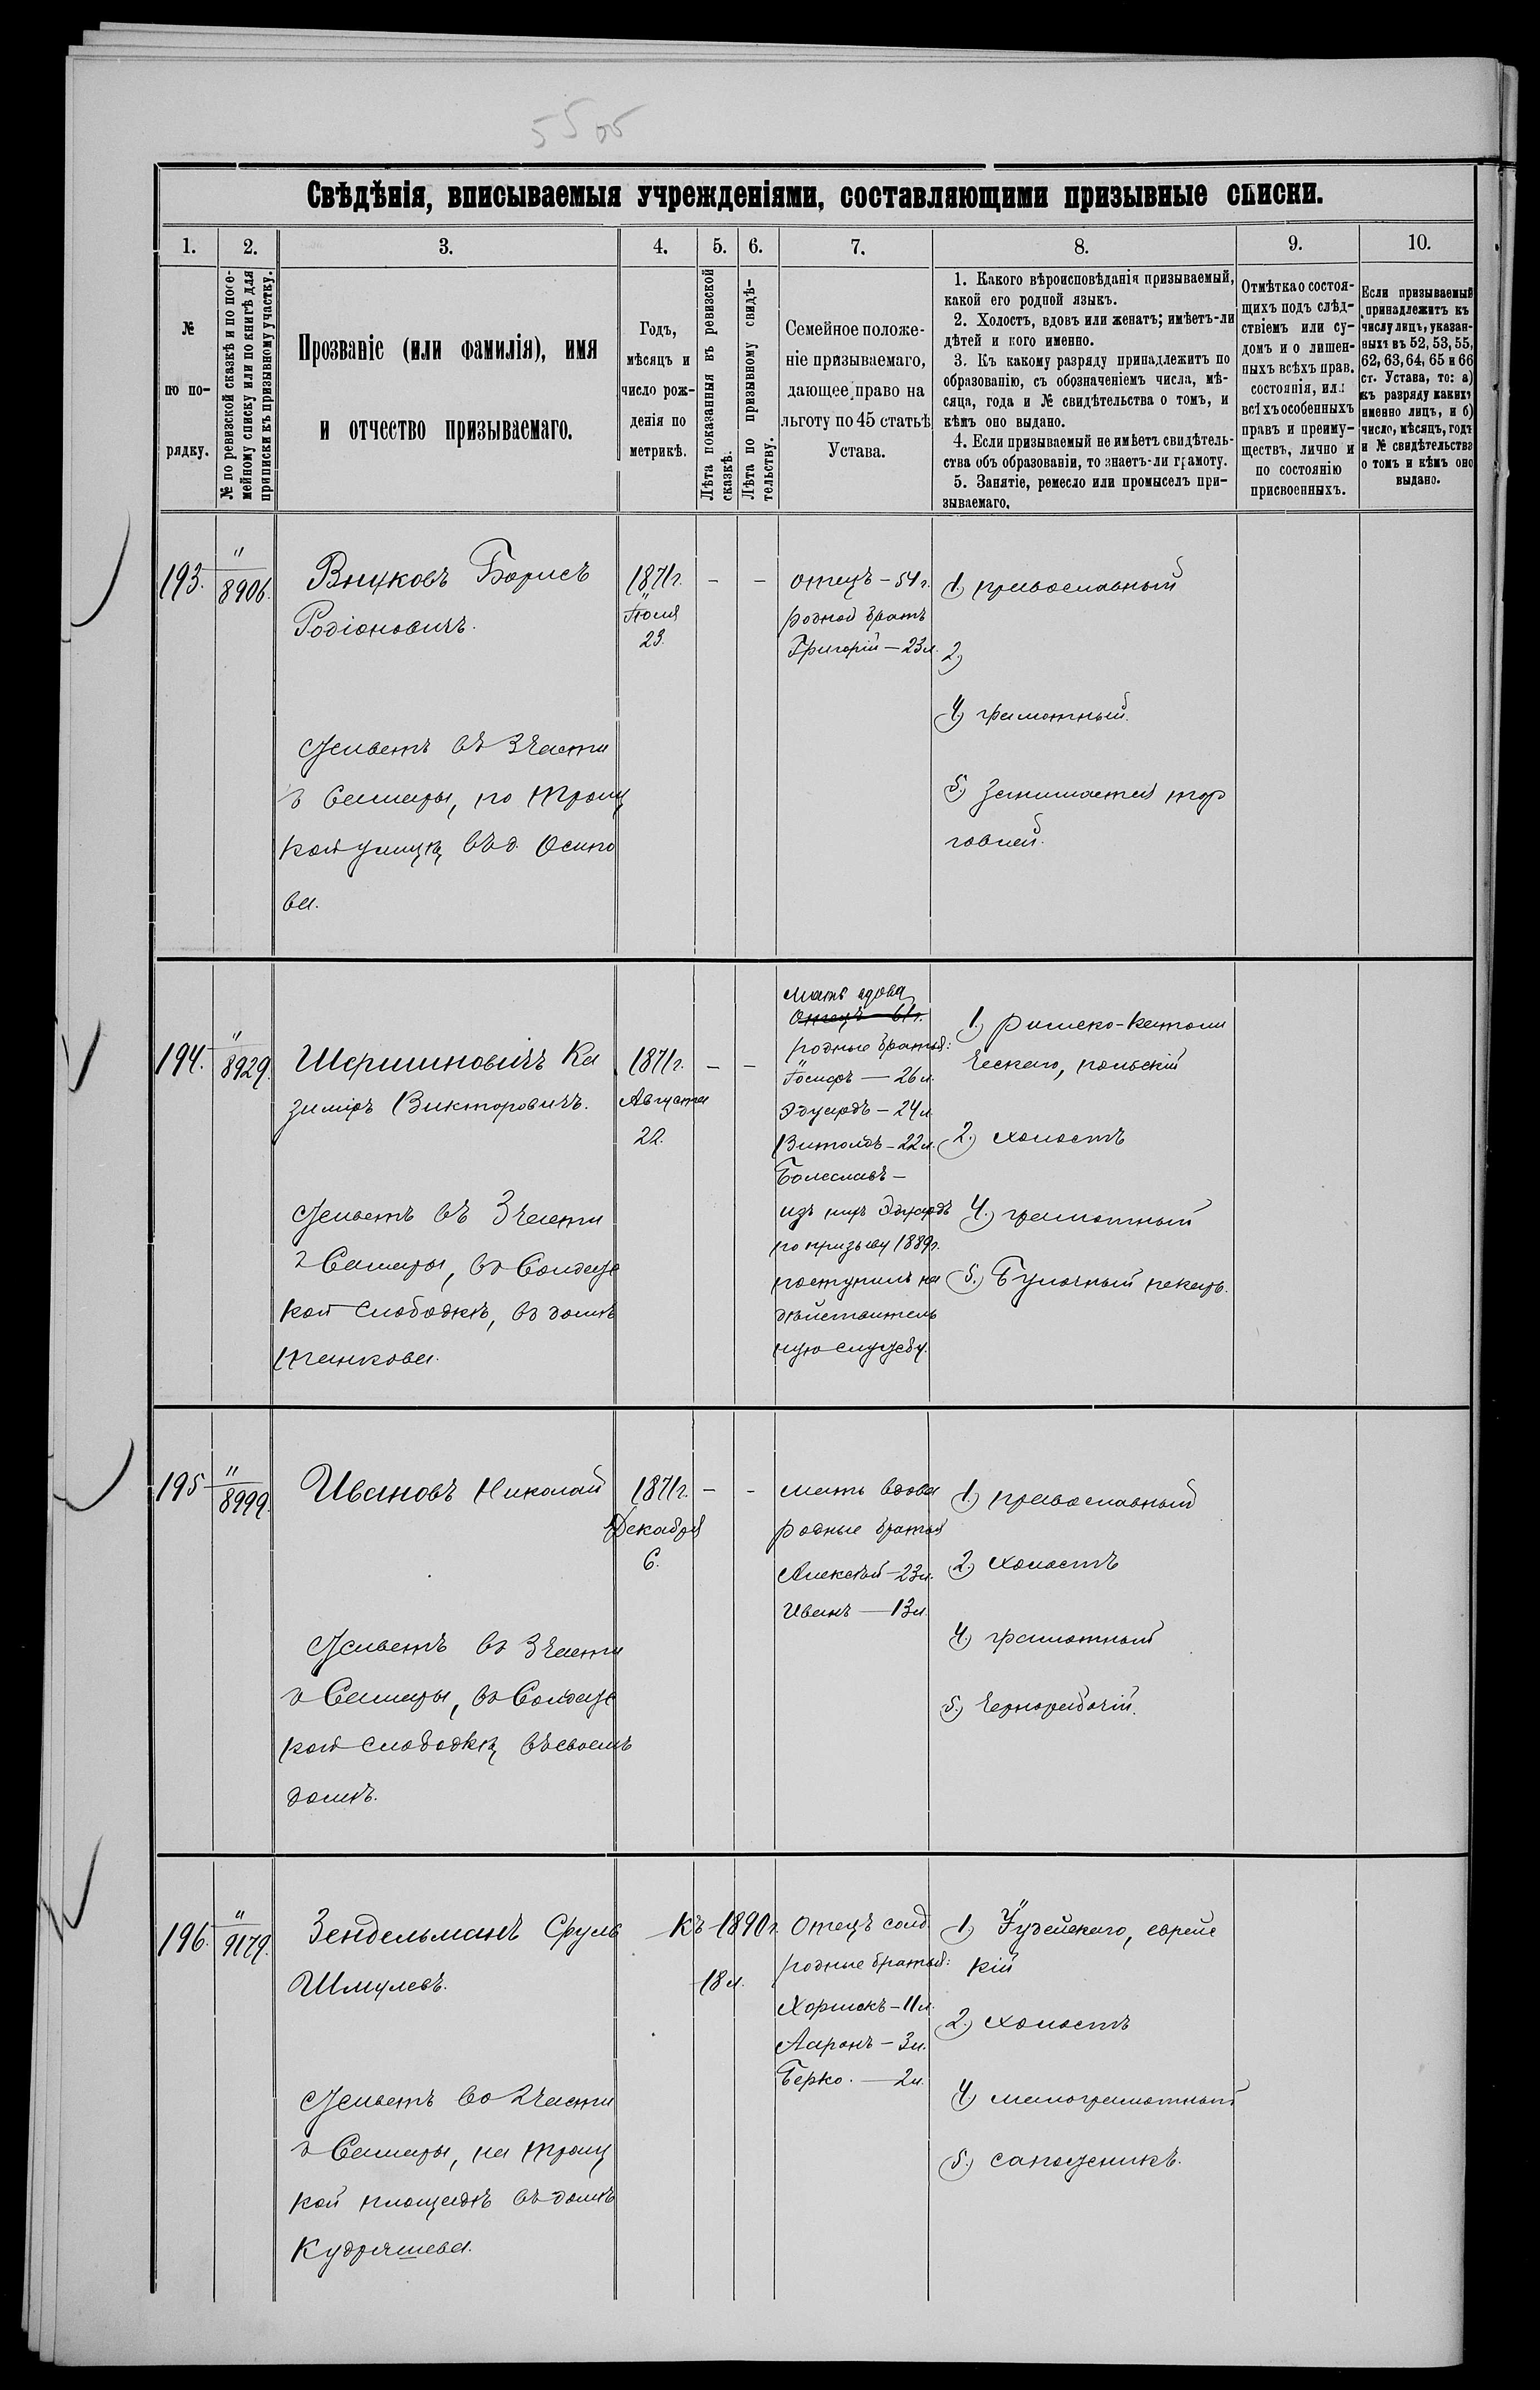 55об
Свѣдѣнія, вписываемыя учрежденіями, составляющими призывные списки.
1.
2.
3.
4.
5.
6.
7.
8.
9.
10.
№
по по-
рядку.
№ по ревизской сказкѣ и по посе-
мейному списку или по книгѣ для
приписки къ призывному участку.
Прозваніе (или фамилія), имя
и отчество призываемаго.
Годъ,
мѣсяцъ и
число рож-
денія по
метрикѣ.
Лѣта показанныя въ ревизской
сказкѣ.
Лѣта по призывному свидѣ-
тельству.
Семейное положе-
ніе призываемаго,
дающее право на
льготу по 45 статьѣ
Устава.
1. Какого вѣроисповѣданія призываемый,
какой его родной языкъ.
2. Холостъ, вдовъ или женатъ; имѣетъ-ли
дѣтей и кого именно.
3. Къ какому разряду принадлежитъ по
образованію, съ обозначеніемъ числа, мѣ-
сяца, года и № свидѣтельства о томъ, и
кѣмъ оно выдано.
4. Если призываемый не имѣетъ свидѣтель-
ства объ образованіи, то знаетъ-ли грамоту.
5. Занятіе, ремесло или промыселъ при-
зываемаго.
Отмѣтка о состоя-
щихъ подъ слѣд-
ствіемъ или су-
домъ и о лишен-
ныхъ всѣхъ прав.
состоянія, или
всѣхъ особенныхъ
правъ и преиму-
ществъ, лично и
по состоянію
присвоенныхъ.
Если призываемый
принадлежитъ къ
числу лицъ, указан-
ныхъ въ 52, 53, 55,
62, 63, 64, 65 и 66
ст. Устава, то: а)
къ разряду какихъ
именно лицъ, и б)
число, мѣсяцъ, годъ
и № свидѣтельства
о томъ и кѣмъ оно
выдано.
193.
"
8906.
Внуковъ Борисъ
Родіоновичъ.
Живетъ въ 3 части
г Самары, по Троиц
кой улицѣ, въ д. Осипо
ва.
1871г.
Іюля
23.
-
-
отецъ - 54 г.
родной братъ
Григорій - 23 л.
1) православный
2)
4) грамотный.
5) Занимается тор
говлей.
194.
"
8929.
Шершиновичъ Ка
зиміръ Викторовичъ.
Живетъ въ 3 части
г Самары, въ Солдатс
кой слободкѣ, въ домѣ
Панкова.
1871г.
Августа
22.
-
-
Мать вдова
Отецъ - 61 г.
родные братья:
Іосифъ - 26 л.
Эдуардъ - 24 л.
Витольдъ - 22 л.
Болеславъ -
изъ нихъ Эдуардъ
по призыву 1889г.
поступилъ на
дѣйствитель
ную службу.
1.) римско-католи
ческаго, польскій
2.) холостъ
4.) грамотный
5.) Булочный пекарь.
195
"
8999.
Ивановъ Николай
Живетъ въ 3 части
г Самары, въ Солдатс
кой слободкѣ, въ своемъ
домѣ.
1871г.
Декабря
6.
-
-
мать вдова
родные братья
Алексѣй - 23 л.
Иванъ - 13 л.
1.) православный
2.) холостъ
4.) грамотный
5.) чернорабочій.
196.
"
9179.
Зендельманъ Сруль
Шмулевъ.
Живетъ во 2 части
г Самары, на Троиц
кой площади въ домѣ
Кудряшева.
Къ 1890 г.
18 л.
Отецъ солд.
родные братья:
- 11 л.
Ааронъ - 3 л.
Берко. - 2 л.
1.) Іудейскаго, еврейс
кій
2.) холостъ
4.) малограмотный
5.) сапожникъ.